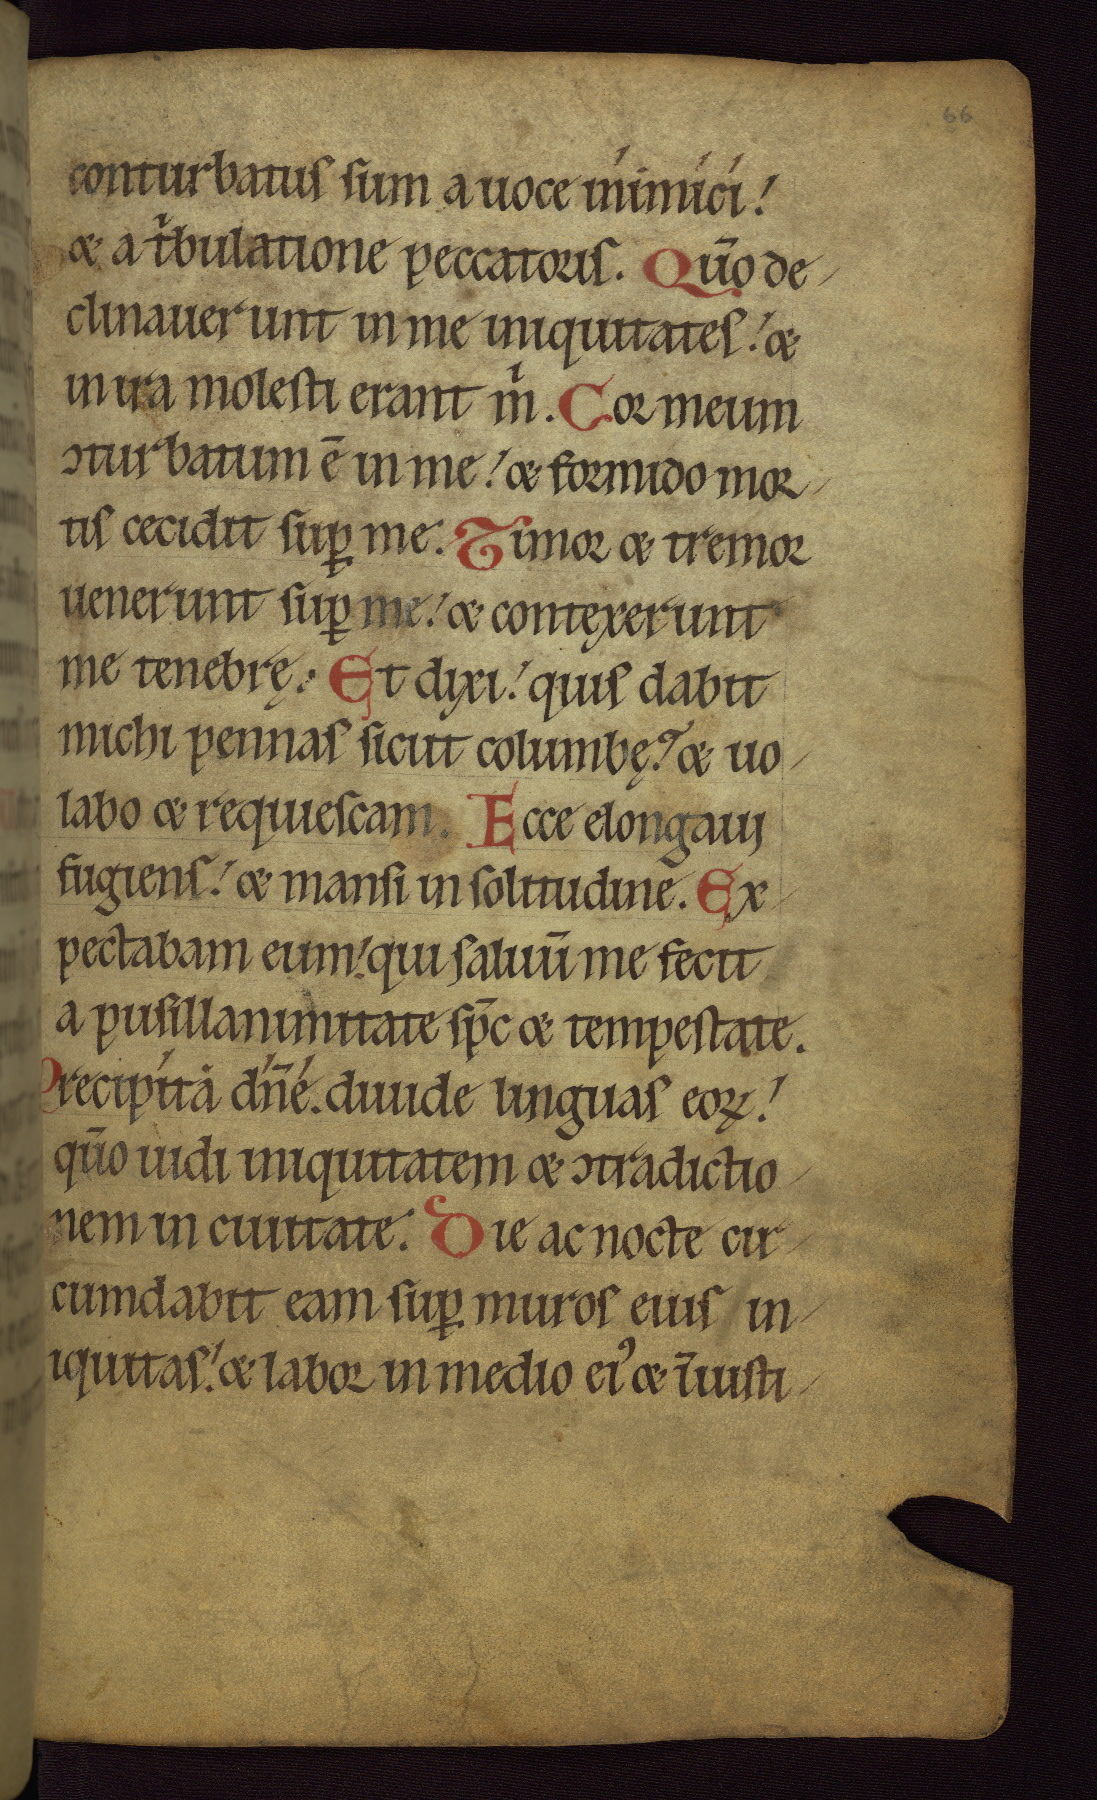 66
conturbatus sum a uoce inimici!
& a tͥbulatione peccatoris. Qūo de
clinauerunt in me iniquitates! &
in ira molesti erant mͥ. Cor meum
ɔturbatum ē in me! & formido mor
tis cecidit suꝑ me. Timor & tremor
uenerunt suꝑ me! & contexerunt
me tenebrę. Et dixi! quis dabit
michi pennas sicut columbę? & uo
labo & requiescam. Ecce elongaui
fugiens! & mansi in solitudine. Ex
pectabam eum! qui saluū me fecit
a pusillanimitate sp̄c & tempestate.
Precipita dn̄e. diuide linguas eoꝝ!
qūo uidi iniquitatem & ɔtradictio
nem in ciuitate. Die ac nocte cir
cumdabit eam suꝑ muros eius in
iquitas! & labor in medio eiꝰ & īiusti